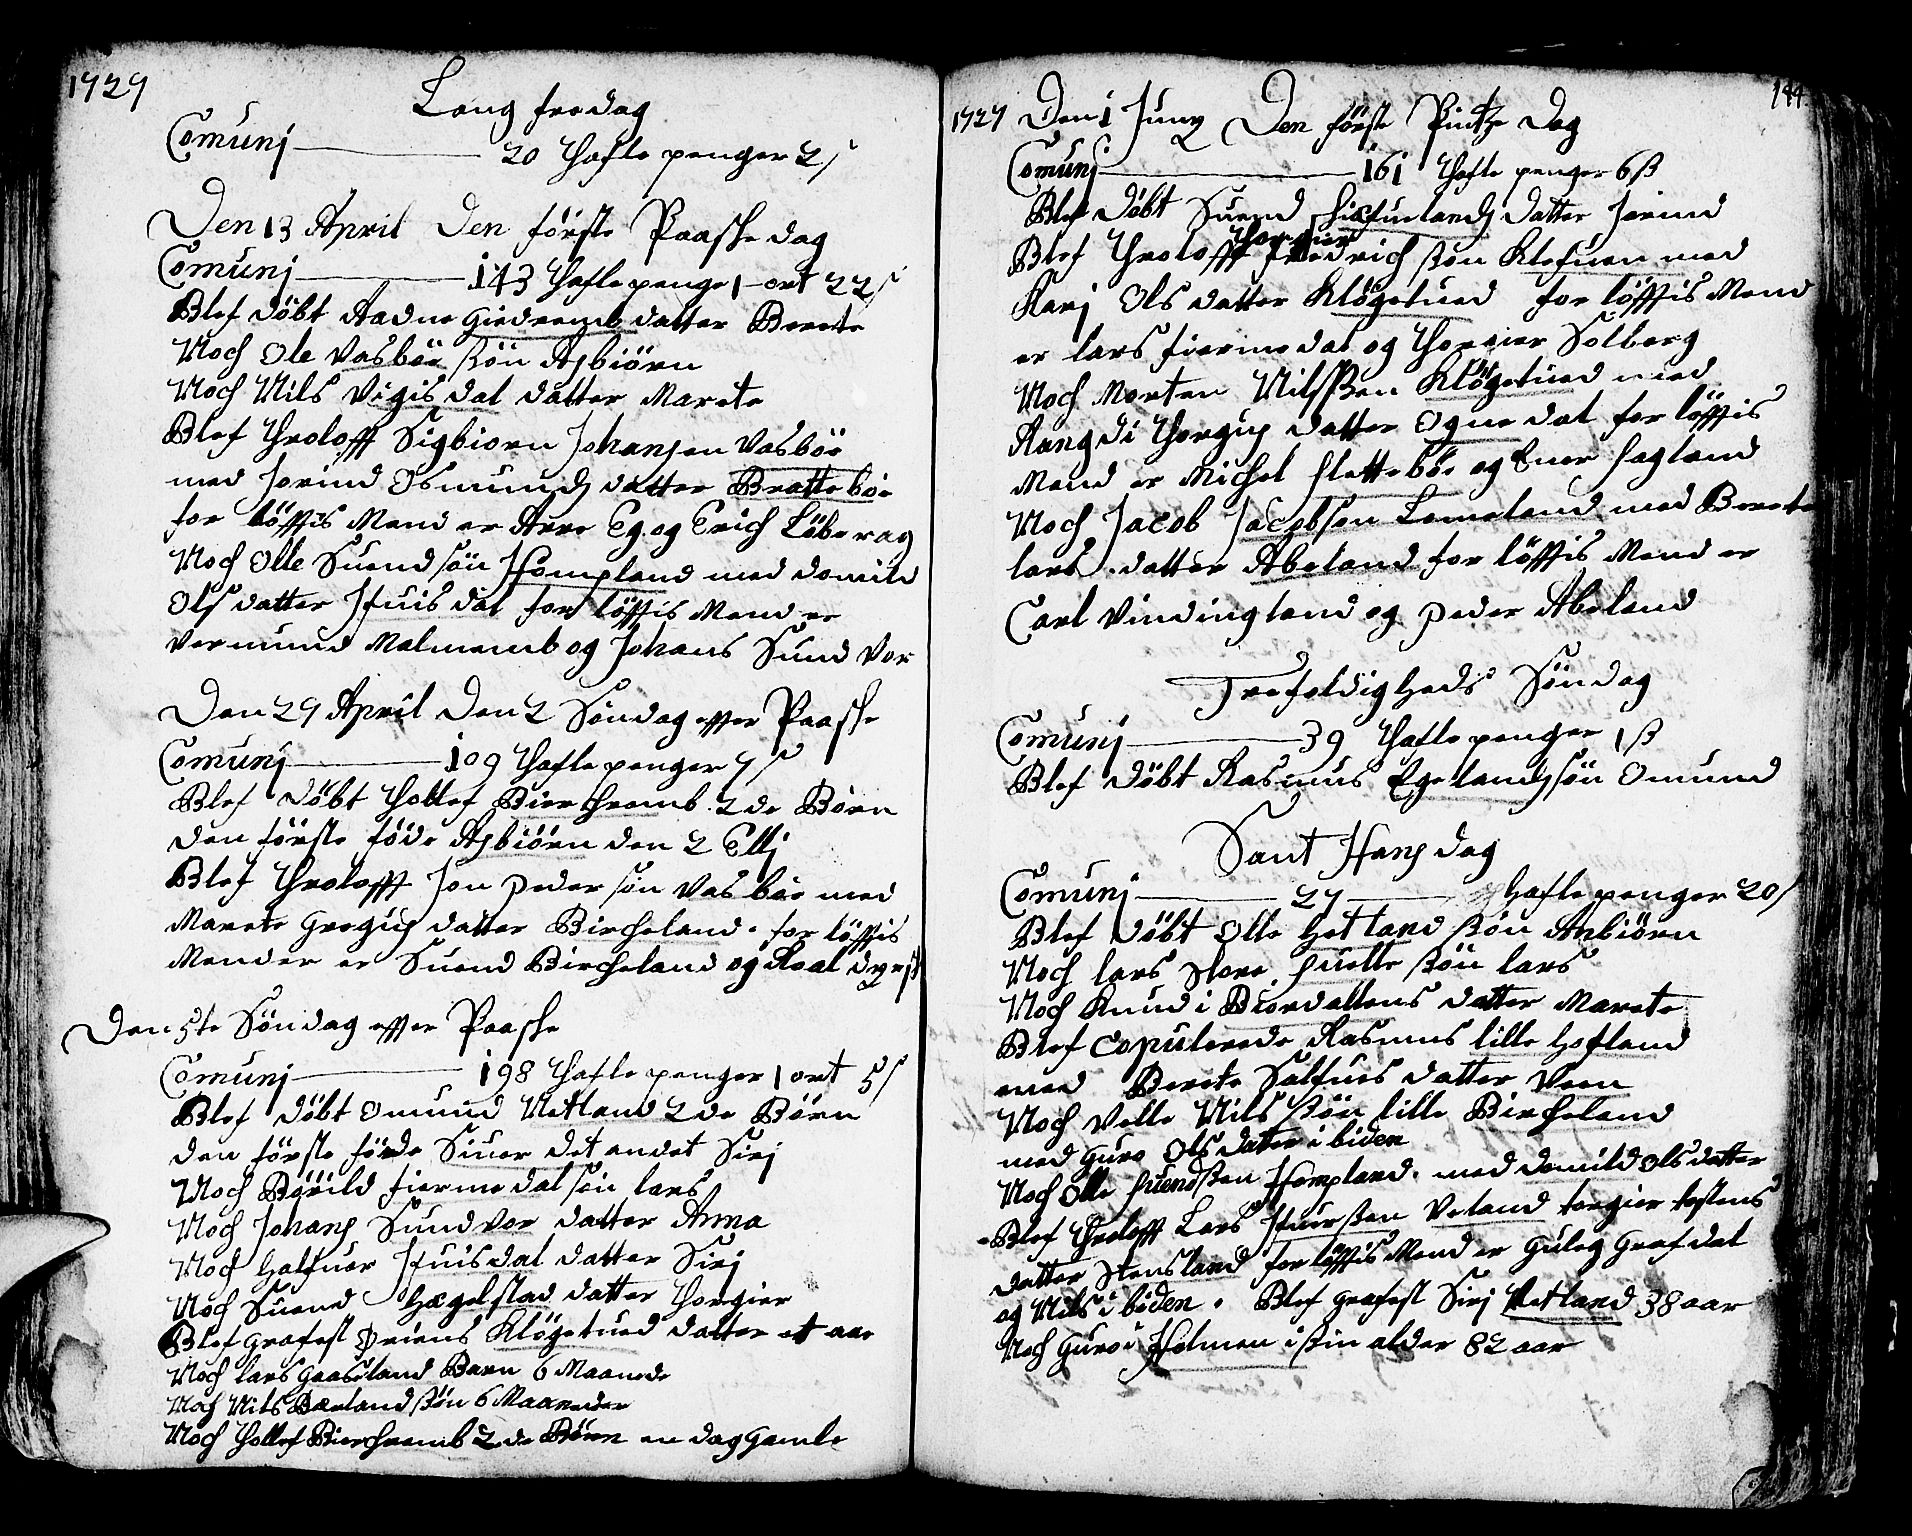 1727
Lang fredag
Comunj 20 Tafle penger 2 s
Den 13 April Den förste Paaske dag
Comunj 143 Tafle penge 1 ort 22 s
Blef döbt Aadne giedremb datter Berete
Noch Ole Vasböe ssön Asbiörn
Noch Nils Vigisdal datter Marete
Blef Throloff Sigbiorn Johansen Vasböe
med Jorind Osmunds datter Bratteböe
for löffis Mend er Arre Eg og Erich Löberag
Noch Olle Suendsön Hompland med Domild
Ols datter Ituisdal for löffis Mend er
Vermund Malmemb og Johans Sundvor
Den 27 April Den 2 Söndag effter Paaske
Comunj 109 Tafle penger 7 s
Blef döbt Tollef Bierchremb 2 de Börn
den förste föde Asbiörn den 2 Ellj
Blef Throloff Jon Pedersön Vasböe med
Marete Gregus datter Bircheland for löffis
Mender er Suend Bircheland og Roal
Den 5te Söndag effter Paaske
Comunj 198 Tafle penger 1 ort 5 s
Blef döbt Omund Netland 2 de Börn
den förste förde Siuer det andet Sirj
Noch Böriild fiermedal sön lars
Noch Johans Sundvor datter Anna
Noch Halfuer Ituisdal datter Sirj
Noch Suend Hægelstad datter Thorgier
Blef grafest Briens Klögetued datter et aar
Noch lars gaaseland Barn 6 Maanede
Noch Nils Bærland ssön 6 Maaneder
Noch Tollef Bierchremb 2 de Börn en dag gamle
144
1727 Den 1 Juny Den förste Pintze Dag
Comunj 161 Tafle penger 6 ß
Blef döbt Suend datter Jorind
Thorgier
Blef Throloff Fredrich ssön Klefuen med
Karj Ols datter Klögetued for löffis Mend
er lars fiermedal og Thorgier Solberg
Noch Morten Nilssen Klögetued med
Rangdi Thorgus datter Ognedal for löffis
Mend er Michel fletteböe og Ener fagland
Noch Jacob Jacobsen Lomeland med Berete
lars datter Abeland for löffis Mend er
Carl Vindingland og Peder Abeland
Trefoldigheds Söndag
Comunj 39 Tafle penger 1 ß
Blef döbt Rasmus Egelands sön Omund
Sant Hans dag
Comunj 27 Tafle penger 20 s
Blef döbt Olle Hetland ssön Anbiörn
Noch lars Store suelle ssön lars
Noch Knud i Biordallens datter Marete
Blef Copulerede Rasmus lille Hofland
med Berete Salfues datter Veen
Noch Velle Nils ssön lille Bircheland
med guro Ols datter i biden
Noch Olle suendssen Hompland med Domild Ols datter
Blef Throloff Lars Ifuerssen Veland torgier tostens
datter Stensland for löffis Mend er Guleg Grafdal
og Nils i biden. Blef grafest Sirj Netland 38 aar
Noch guro i Holmen i ssin alder 82 aar